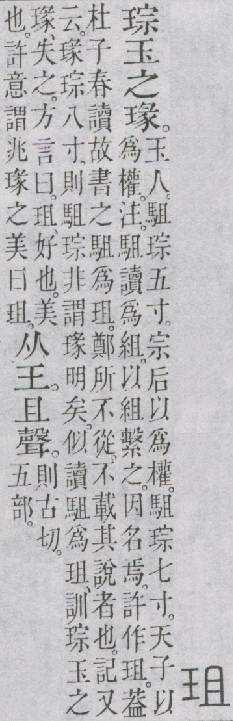 琮玉之瑑。
玉人。駔琮五寸。宗后以爲權。駔琮七寸。天子以
爲權。注。駔讀爲組。以組繫之。因名焉。許作珇。葢
杜子春讀故書之駔爲珇。鄭所不從。不載其說者也。記又
云。瑑琮八寸。則駔琮非謂瑑明矣。似讀駔爲珇。訓琮玉之
瑑。失之。方言曰。珇好也。美
也。許意謂兆瑑之美曰珇。
从王。且聲。
則古切。
五部。
珇